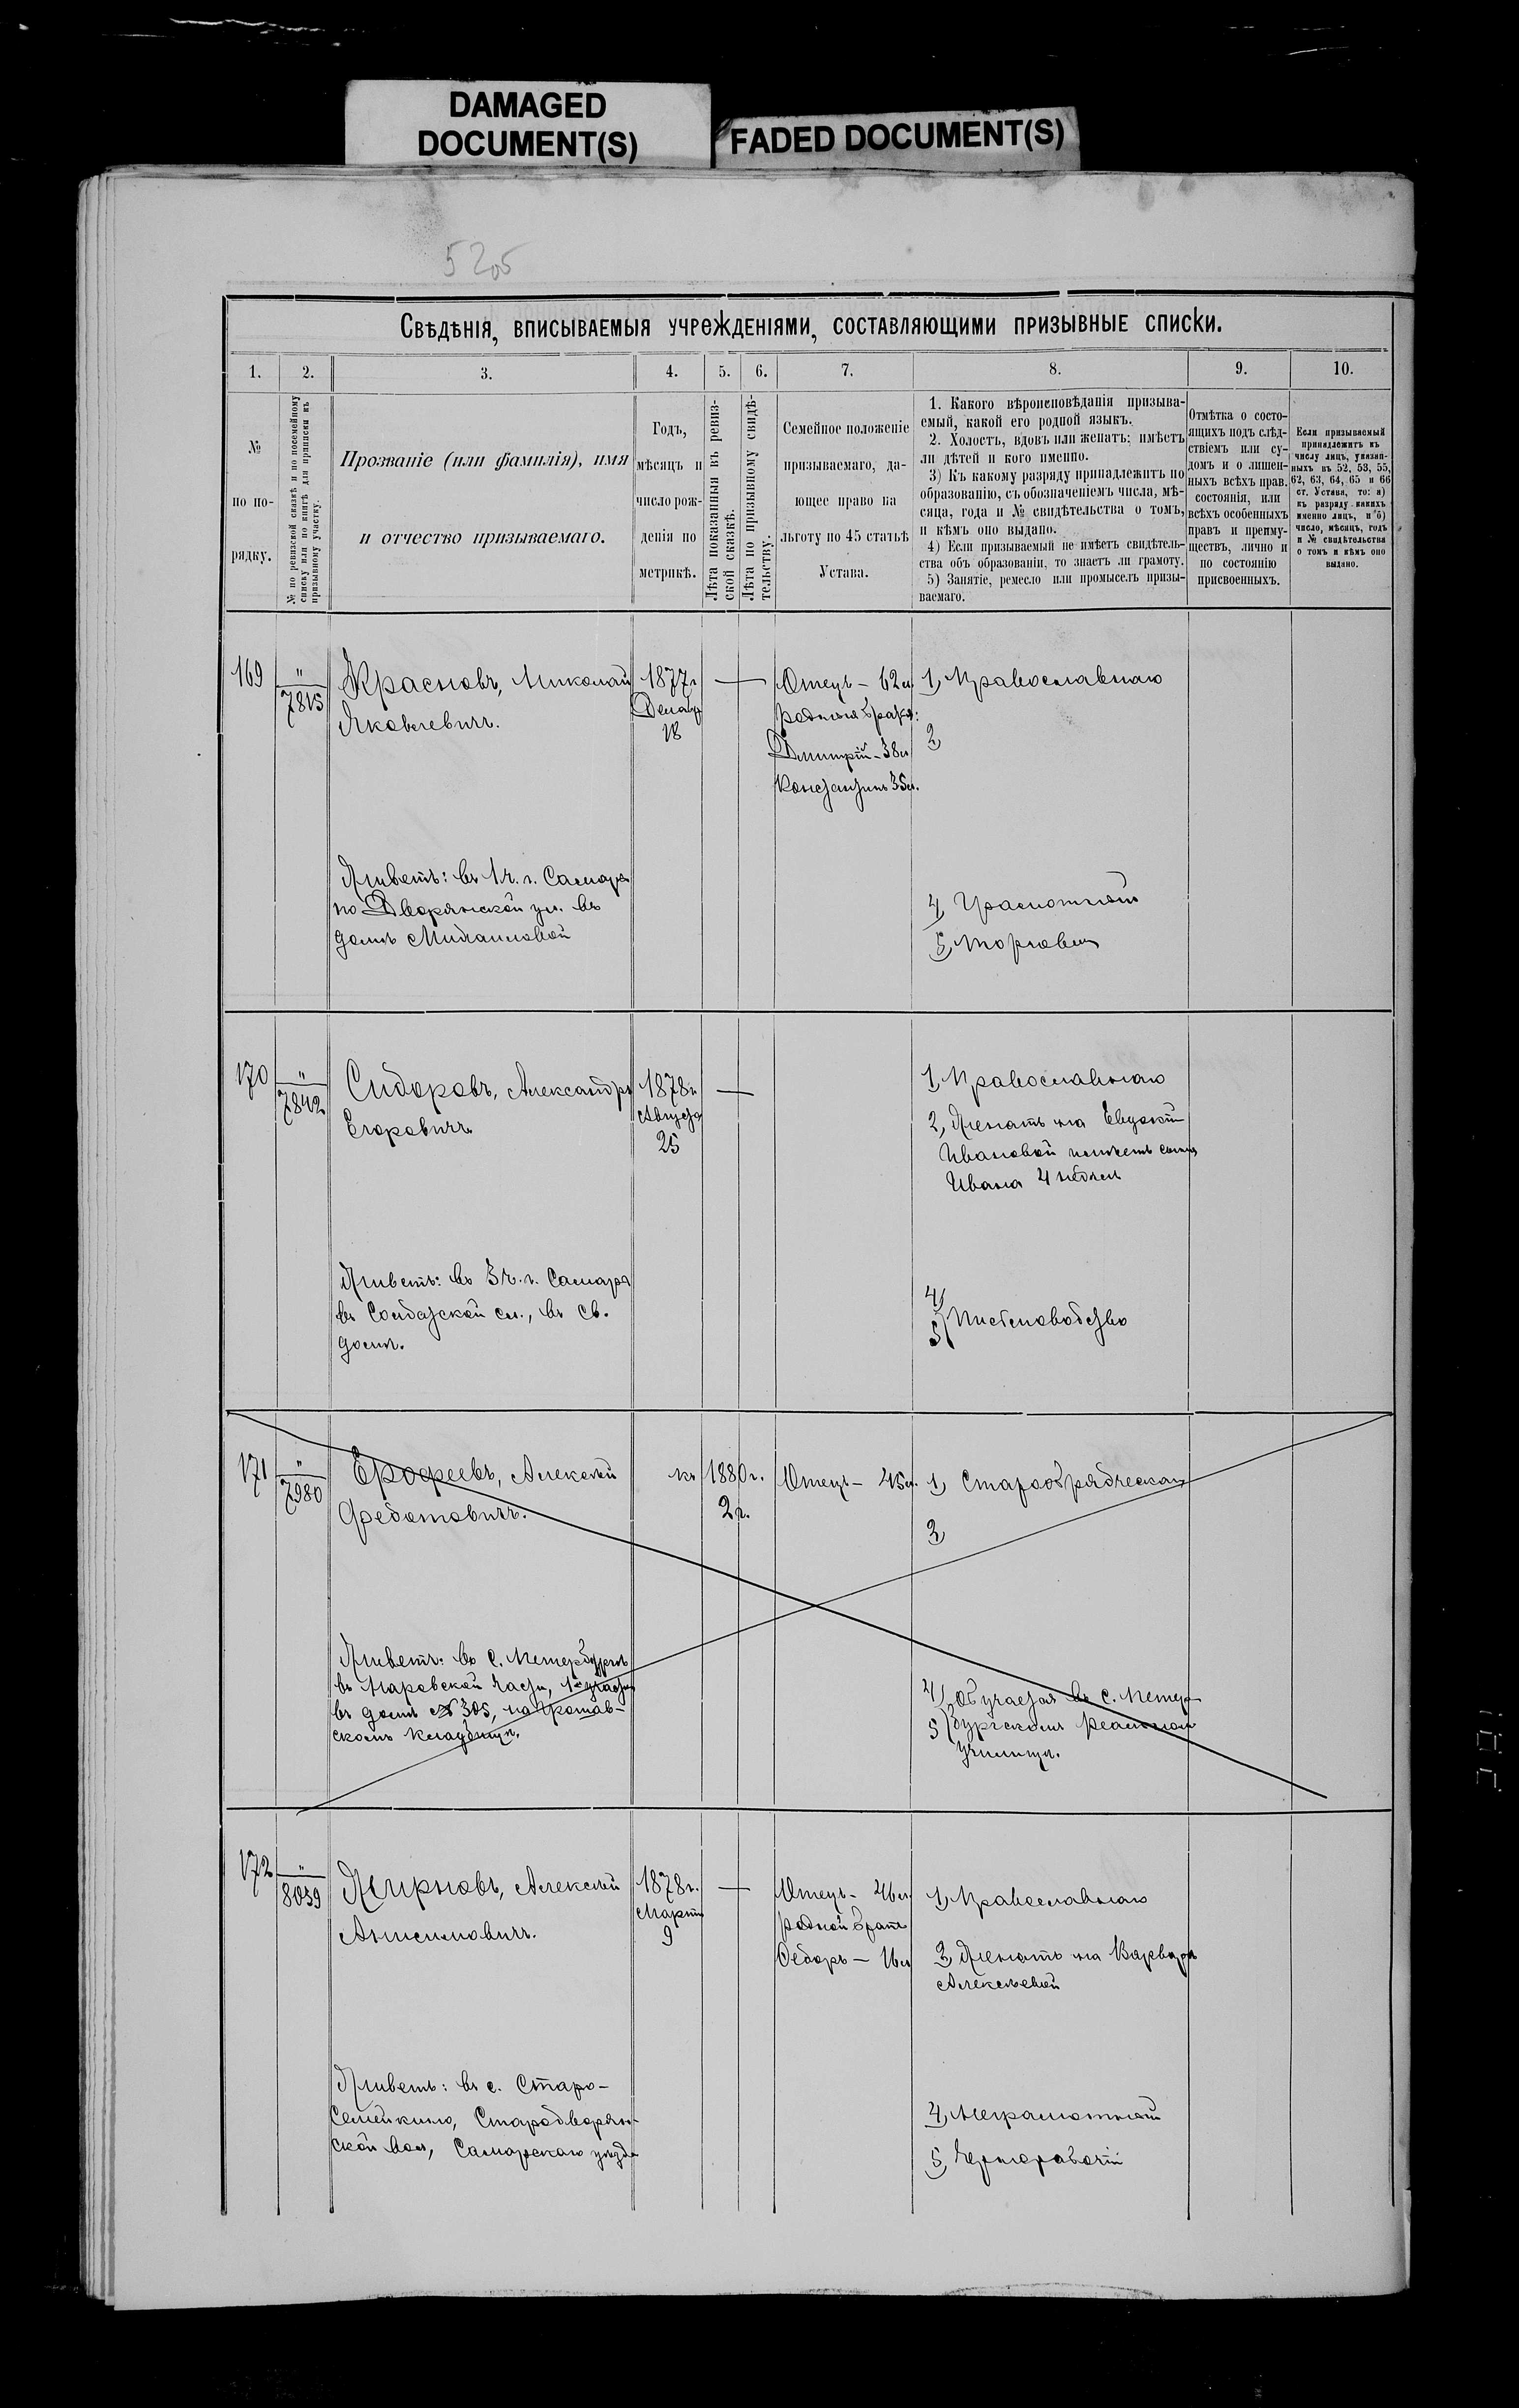 DAMAGED
DOCUMENT(S)
FADED DOCUMENT(S)
5205
Свѣдѣнія, вписываемыя учрежденіями, составляющими призывные списки.
1. 2. 3. 4. 5. 6. 7. 8. 9. 10.
№
по по-
рядку.
№ по ревизской сказкѣ и по посемейному
списку или по книгѣ для приписки къ
призывному участку.
Прозваніе (или фамилія), имя
и отчество призываемаго.
Годъ,
мѣсяцъ и
число рож-
денія по
метрикѣ.
Лѣта показанныя въ ревиз-
ской сказкѣ.
Лѣта по призывному свидѣ-
тельству.
Семейное положеніе
призываемаго, да-
ющее право на
льготу по 45 статьѣ
Устава.
1. Какого вѣроисповѣданія призыва-
емый, какой его родной языкъ.
2. Холостъ, вдовъ или женатъ; имѣетъ
ли дѣтей и кого именно.
3) Къ какому разряду принадлежитъ по
образованію, съ обозначеніемъ числа, мѣ-
сяца, года и № свидѣтельства о томъ,
и кѣмъ оно выдано.
4) Если призываемый не имѣетъ свидѣтель-
ства объ образованіи, то знаетъ ли грамоту.
5) Занятіе, ремесло или промыселъ призы-
ваемаго.
Отмѣтка о состо-
ящихъ подъ слѣд-
ствіемъ или су-
домъ и о лишен-
ныхъ всѣхъ прав.
состоянія, или
всѣхъ особенныхъ
правъ и преиму-
ществъ, лично и
по состоянію
присвоенныхъ.
Если призываемый
принадлежитъ къ
числу лицъ, указан-
ныхъ въ 52, 53, 55,
62, 63, 64, 65 и 66
ст. Устава, то: а)
къ разряду какихъ
именно лицъ, и б)
число, мѣсяцъ, годъ
и № свидѣтельства
о томъ и кѣмъ оно
выдано.
169
"
7815
Красновъ, Николай
Яковлевичъ.
1877г
Декабр
18
Отецъ – 62 л
родныя братя:
Дмитрій – 38 л
Константинъ 35 л.
1, Православнаго
2,
Живетъ: въ 1 ч. г. Самары
по Дворянской ул. въ
домѣ Михаиловой
4, Грамотный
5, Торговец
170
"
7842
Сидоровъ, Александръ
Егоровичъ.
1878г
Августа
25
1, Православнаго
2, Женатъ на Евдокіи
Ивановой имѣетъ сына
Ивана 4 недѣль
Живетъ: въ 3 ч. г. Самары
въ Солдатской сл., въ св.
домѣ.
4)
5) Письмоводство
171
"
7980
Ерофеевъ, Алексѣй
Федотовичъ.
къ 1880г.
2 г.
Отецъ – 45 л.
1, Старообрядческаго
2,
Живетъ: въ С. Петербургѣ
въ Нарвской части, 1го участка
въ домѣ № 305, на
скомъ кладбищѣ.
4) Обучается въ С. Петер-
5) бургскомъ реальном
училищѣ.
172
"
8039
Жирновъ, Алексѣй
Анисимовичъ.
1878г.
Марта
9
Отецъ – 46 л.
родной братъ
Федоръ – 16 л
1, Православнаго
2, Женатъ на Варварѣ
Алексѣевой
Живетъ: въ с. Старо-
Семейкино, Стародворян-
ской вол, Самарскаго уѣзда
4, Неграмотный
5, Чернорабочій